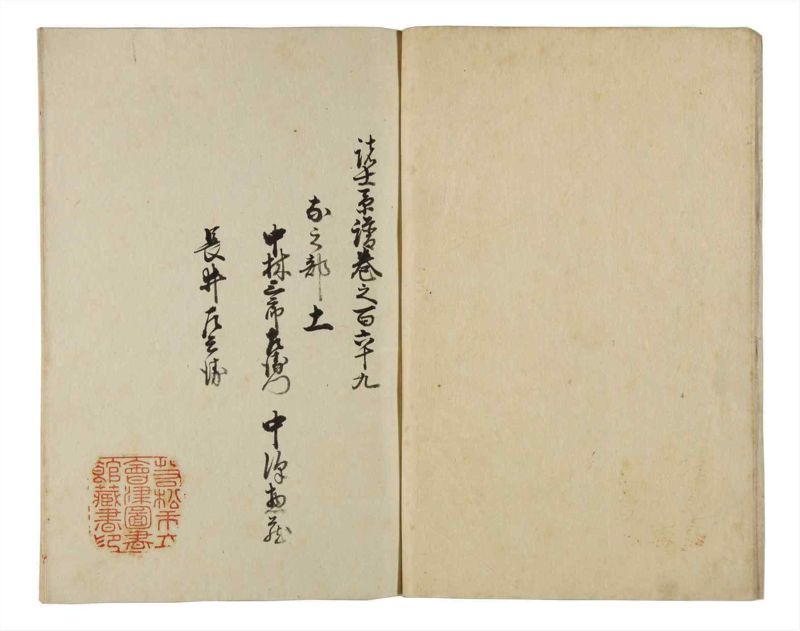 諸士系譜巻之百六十九
な之部 土
中林三郎左衛門 中澤志茂
長井左兵衛
若松市立
會津圖書
館藏書印